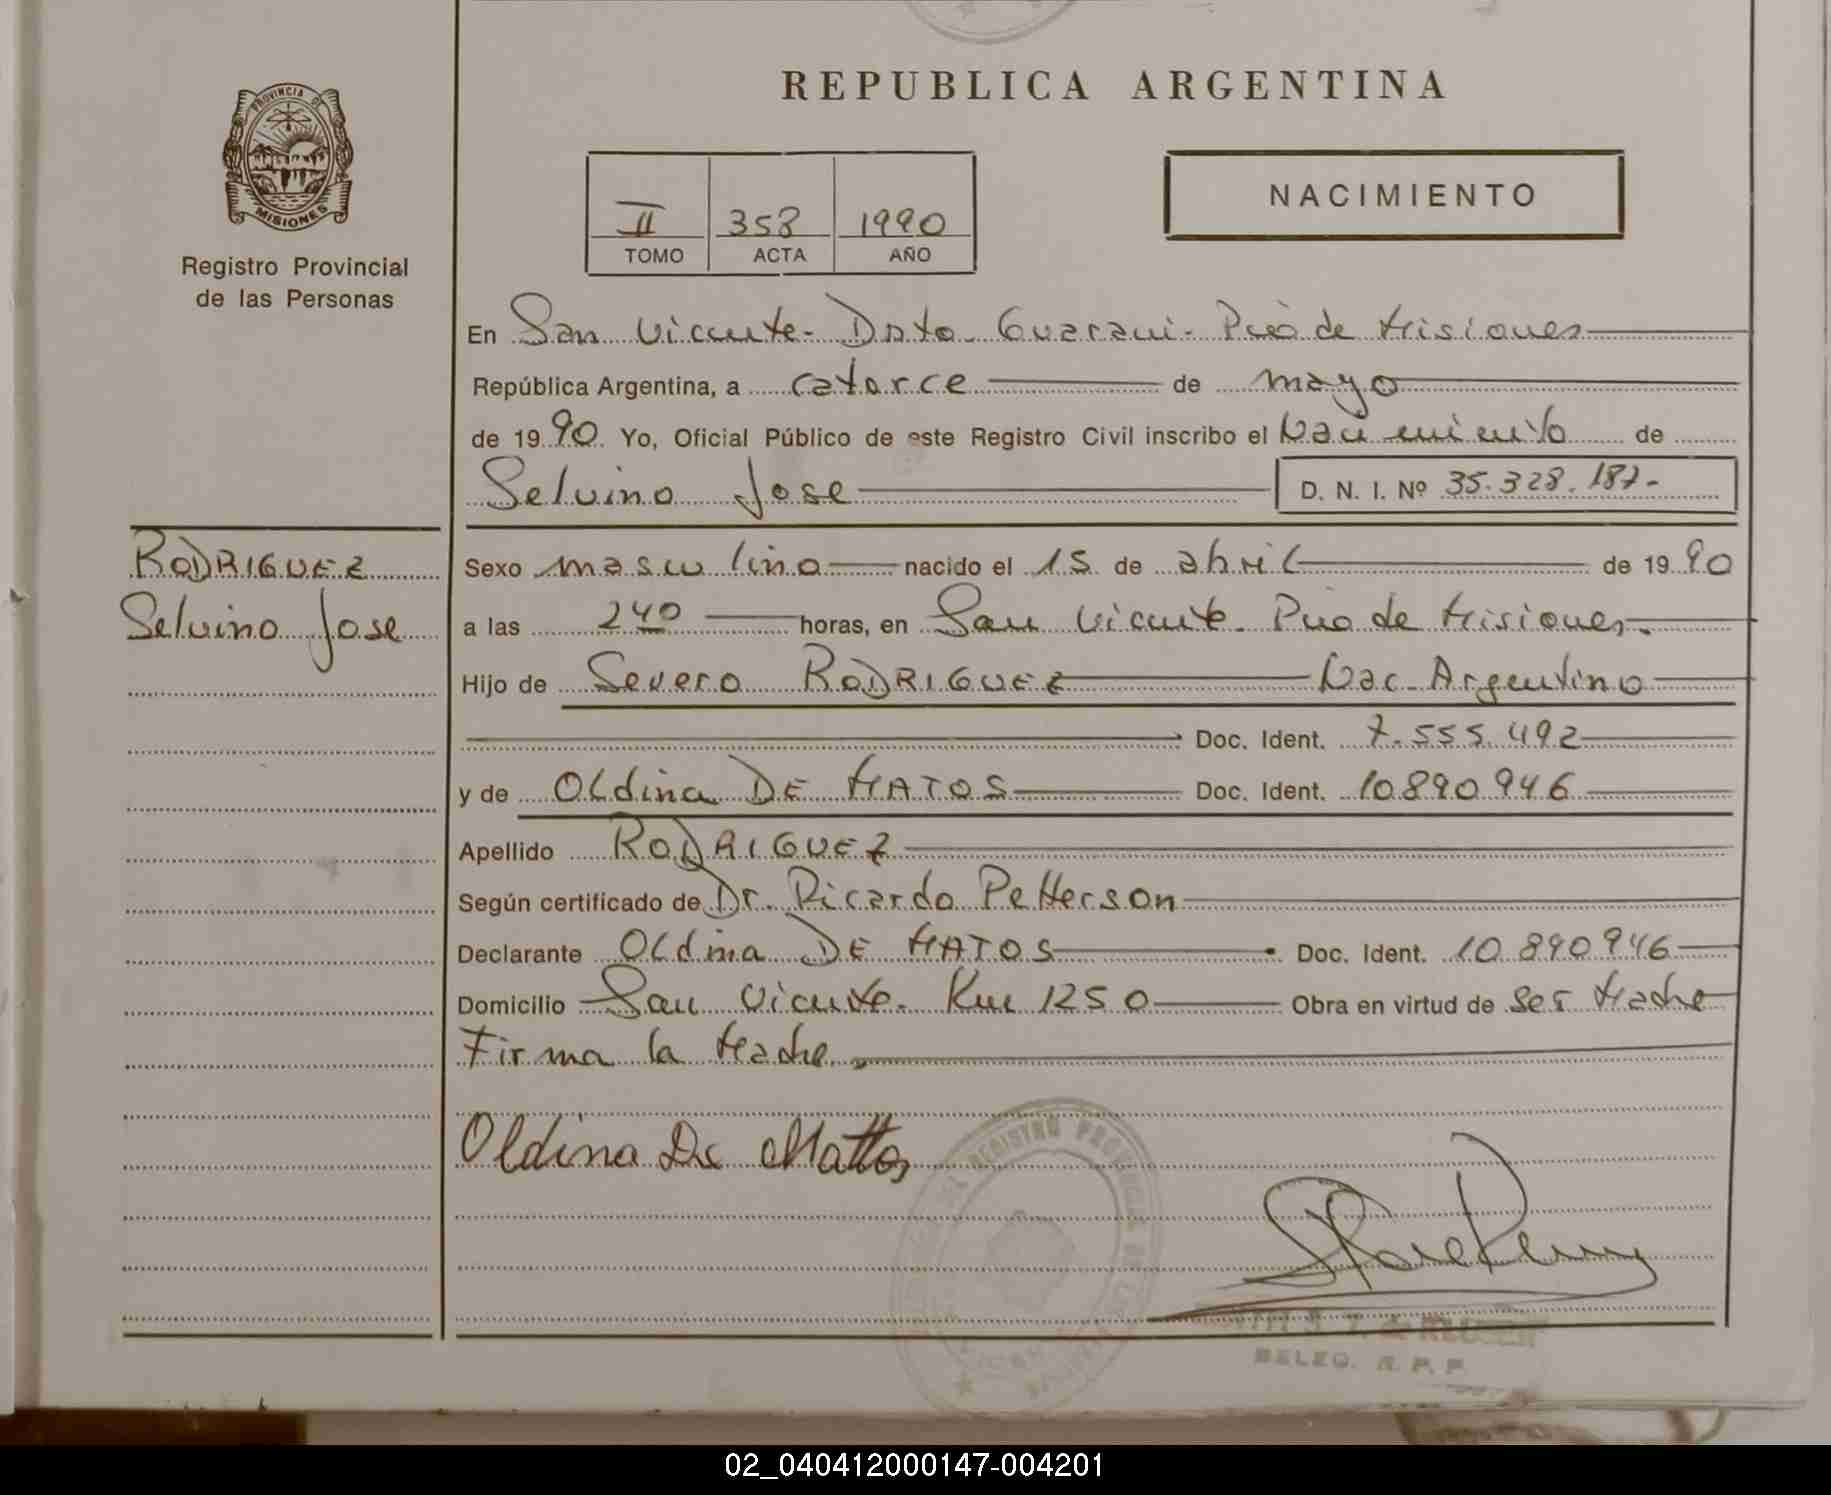 REPUBLICA ARGENTINA
PROVINCIA DE
MISIONES
Registro Provincial
de las Personas
II 358 1990
TOMO ACTA AÑO
NACIMIENTO
En San Vicente - Dpto. Guarani - Pcia de Misiones
República Argentina, a catorce de mayo
de 1990. Yo, Oficial Público de este Registro Civil inscribo el Nacimiento de
Selvino Jose
D. N. I. Nº 35.328.187-
RODRIGUEZ
Selvino Jose
Sexo masculino nacido el 15 de abril de 1990
a las 240 horas, en San Vicente - Pcia de Misiones.
Hijo de Severo RODRIGUEZ Nac. Argentino
Doc. Ident. 7.555.492
y de OLdina DE MATOS Doc. Ident. 10890946
Apellido RODRIGUEZ
Según certificado de Dr. Ricardo Petterson
Declarante OLdina DE MATOS Doc. Ident. 10.890946
Domicilio San Vicente - Km 1250 Obra en virtud de ser Madre
Firma la Madre.
Oldina De Mattos
REGISTRO PROVINCIAL DE LAS
R. P. P.
02_040412000147-004201